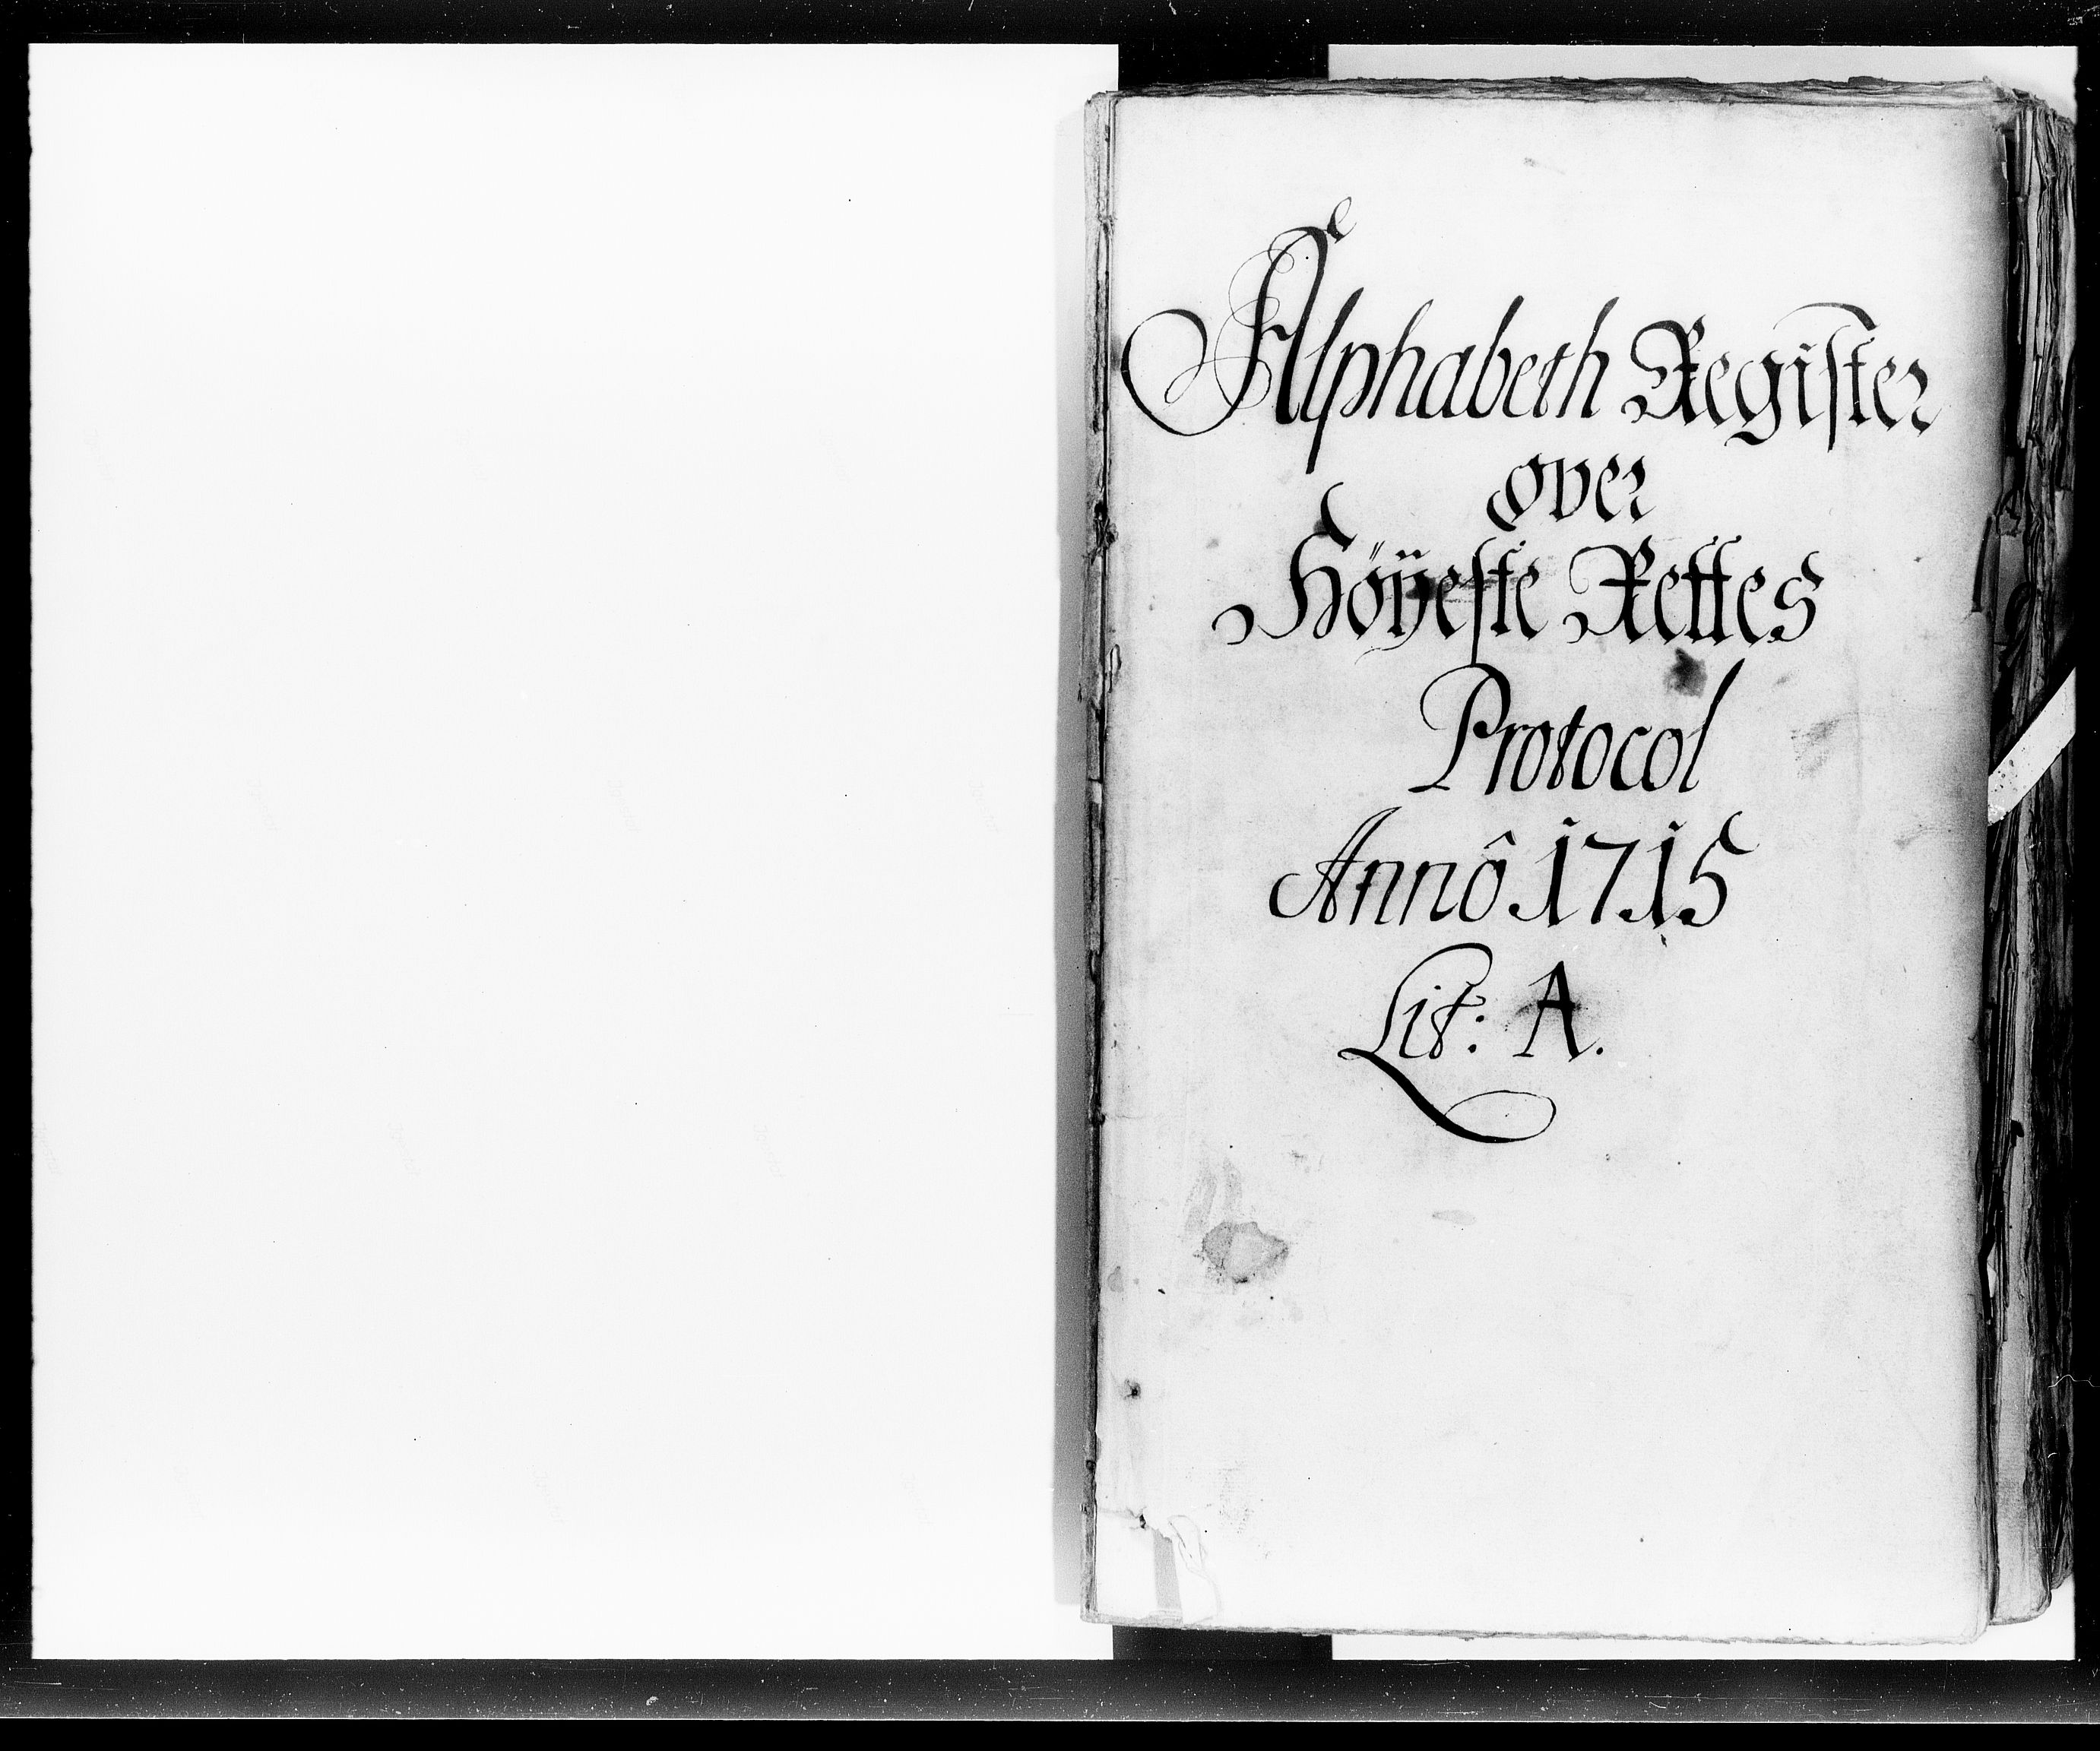 Alphabeth Register
over
Höÿeste Rettes
Protocol
Annô 1715
Lit: A.